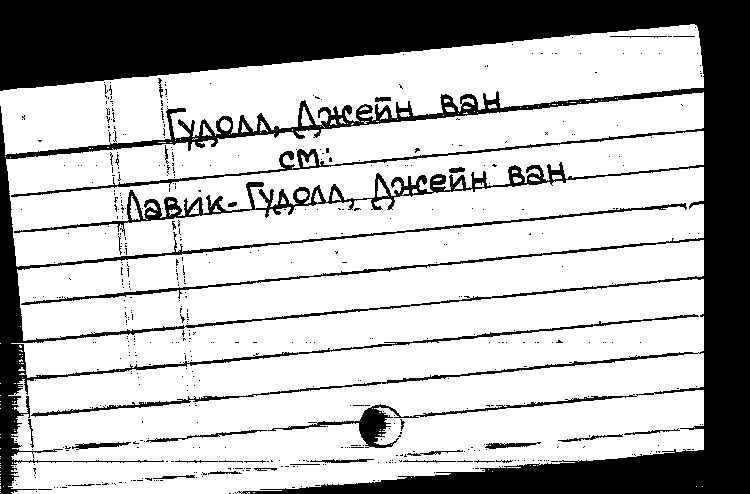 Гудолл, Джейн ван
см.:
Лавик-Гудолл, Джейн ван.